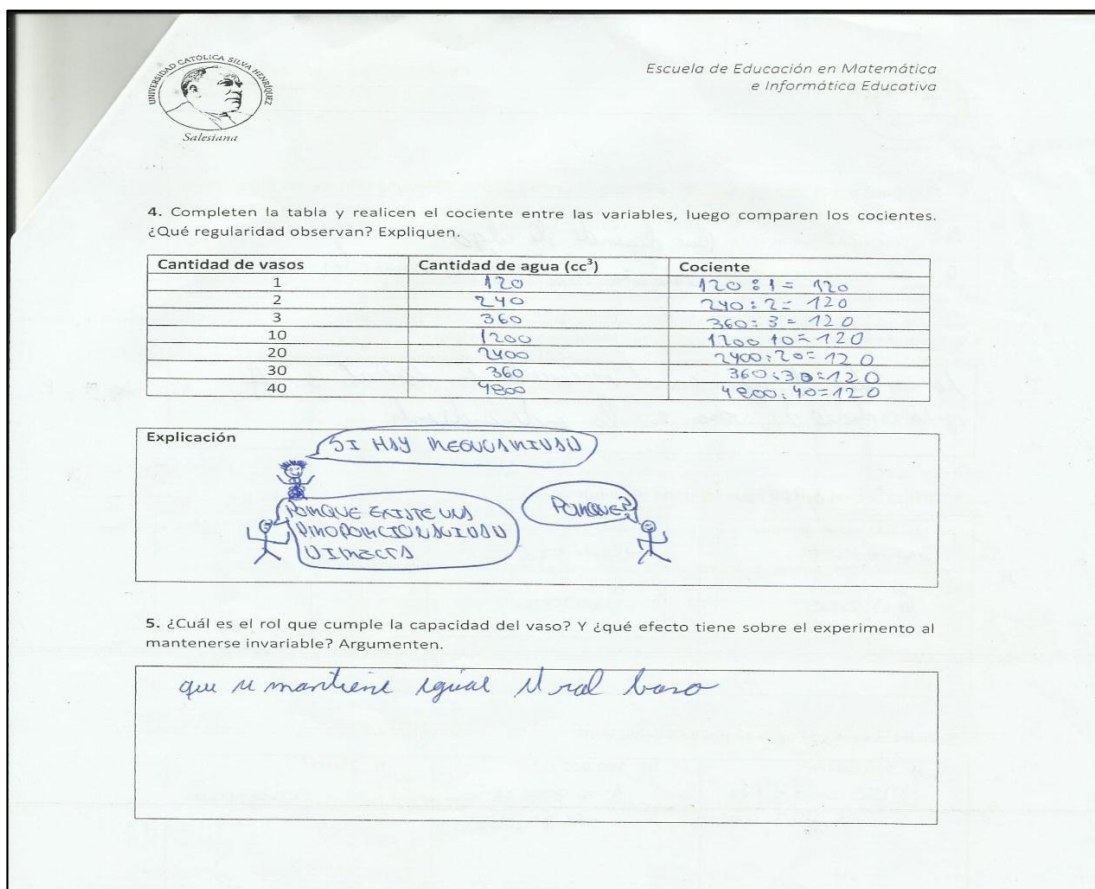 UNIVERSIDAD CATÓLICA SILVA HENRÍQUEZ
Salesiana
Escuela de Educación en Matemática
e Informática Educativa
4. Completen la tabla y realicen el cociente entre las variables, luego comparen los cocientes.
¿Qué regularidad observan? Expliquen.
Cantidad de vasos Cantidad de agua (cc³) Cociente
1 120 120:1= 120
2 240 240:2= 120
3 360 360:3=120
10 1200 1200 10=120
20 2400 2400:20=120
30 360 360:30=120
40 4800 4800:40=120
Explicación
SI HAY REGULARIDAD
PORQUE?
PORQUE EXISTE UNA
PROPORCIONALIDAD
DIRECTA
5. ¿Cuál es el rol que cumple la capacidad del vaso? Y ¿qué efecto tiene sobre el experimento al
mantenerse invariable? Argumenten.
que se mantiene igual el rol baso